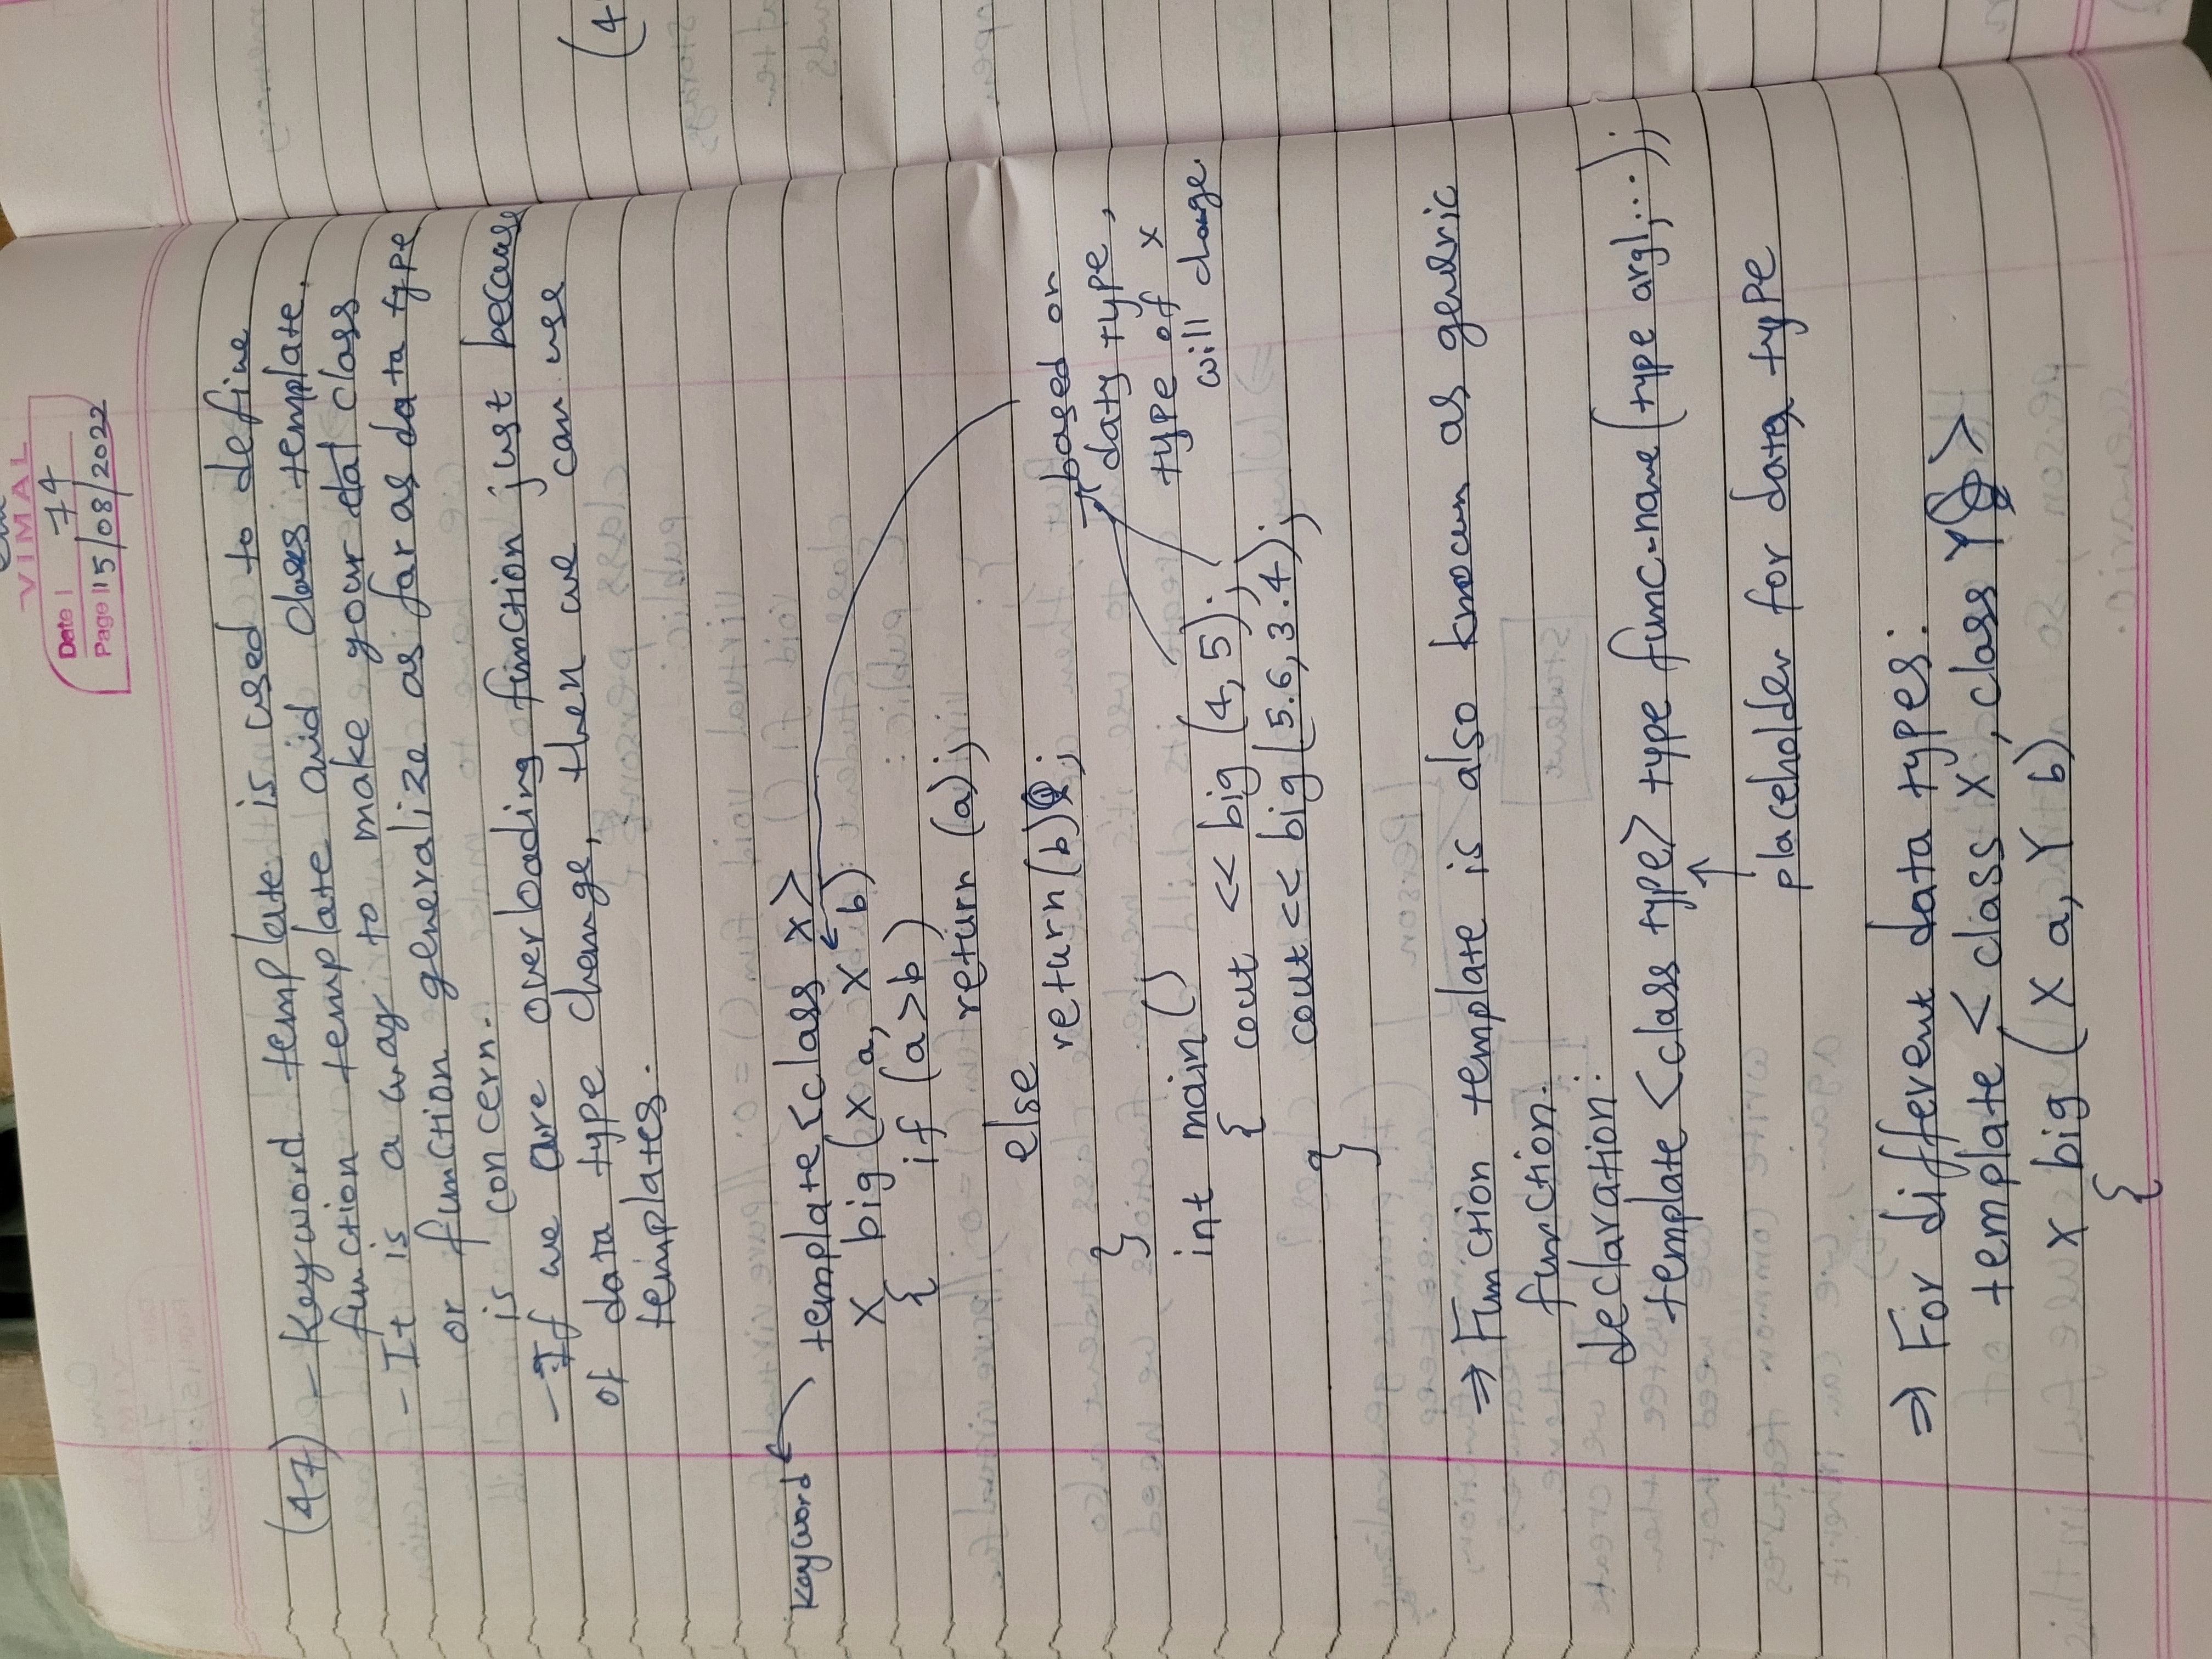 VIMAL
Date 74
Page 15/08/2022
(47) - Keyword template is used to define
function template and class template.
- It is a way to make your class
or function generalize as far as data type
is concern.
- If we are overloading function just because
of data type change, then we can use
templates.
keyword
template <class X>
X big (X a, X b)
{ if (a>b)
return (a);
else
return (b);
}
based on
data type,
type of X
will change.
int main()
{ cout << big (4, 5);
cout << big (5.6, 3.4);
}
⇒ Function template is also known as generic
function.
declaration:
template <class type> type func-name (type arg1, ...);
↑
placeholder for data type
⇒ For different data types:
template < class X, class Y >
X big (X a, Y b)
{
(4